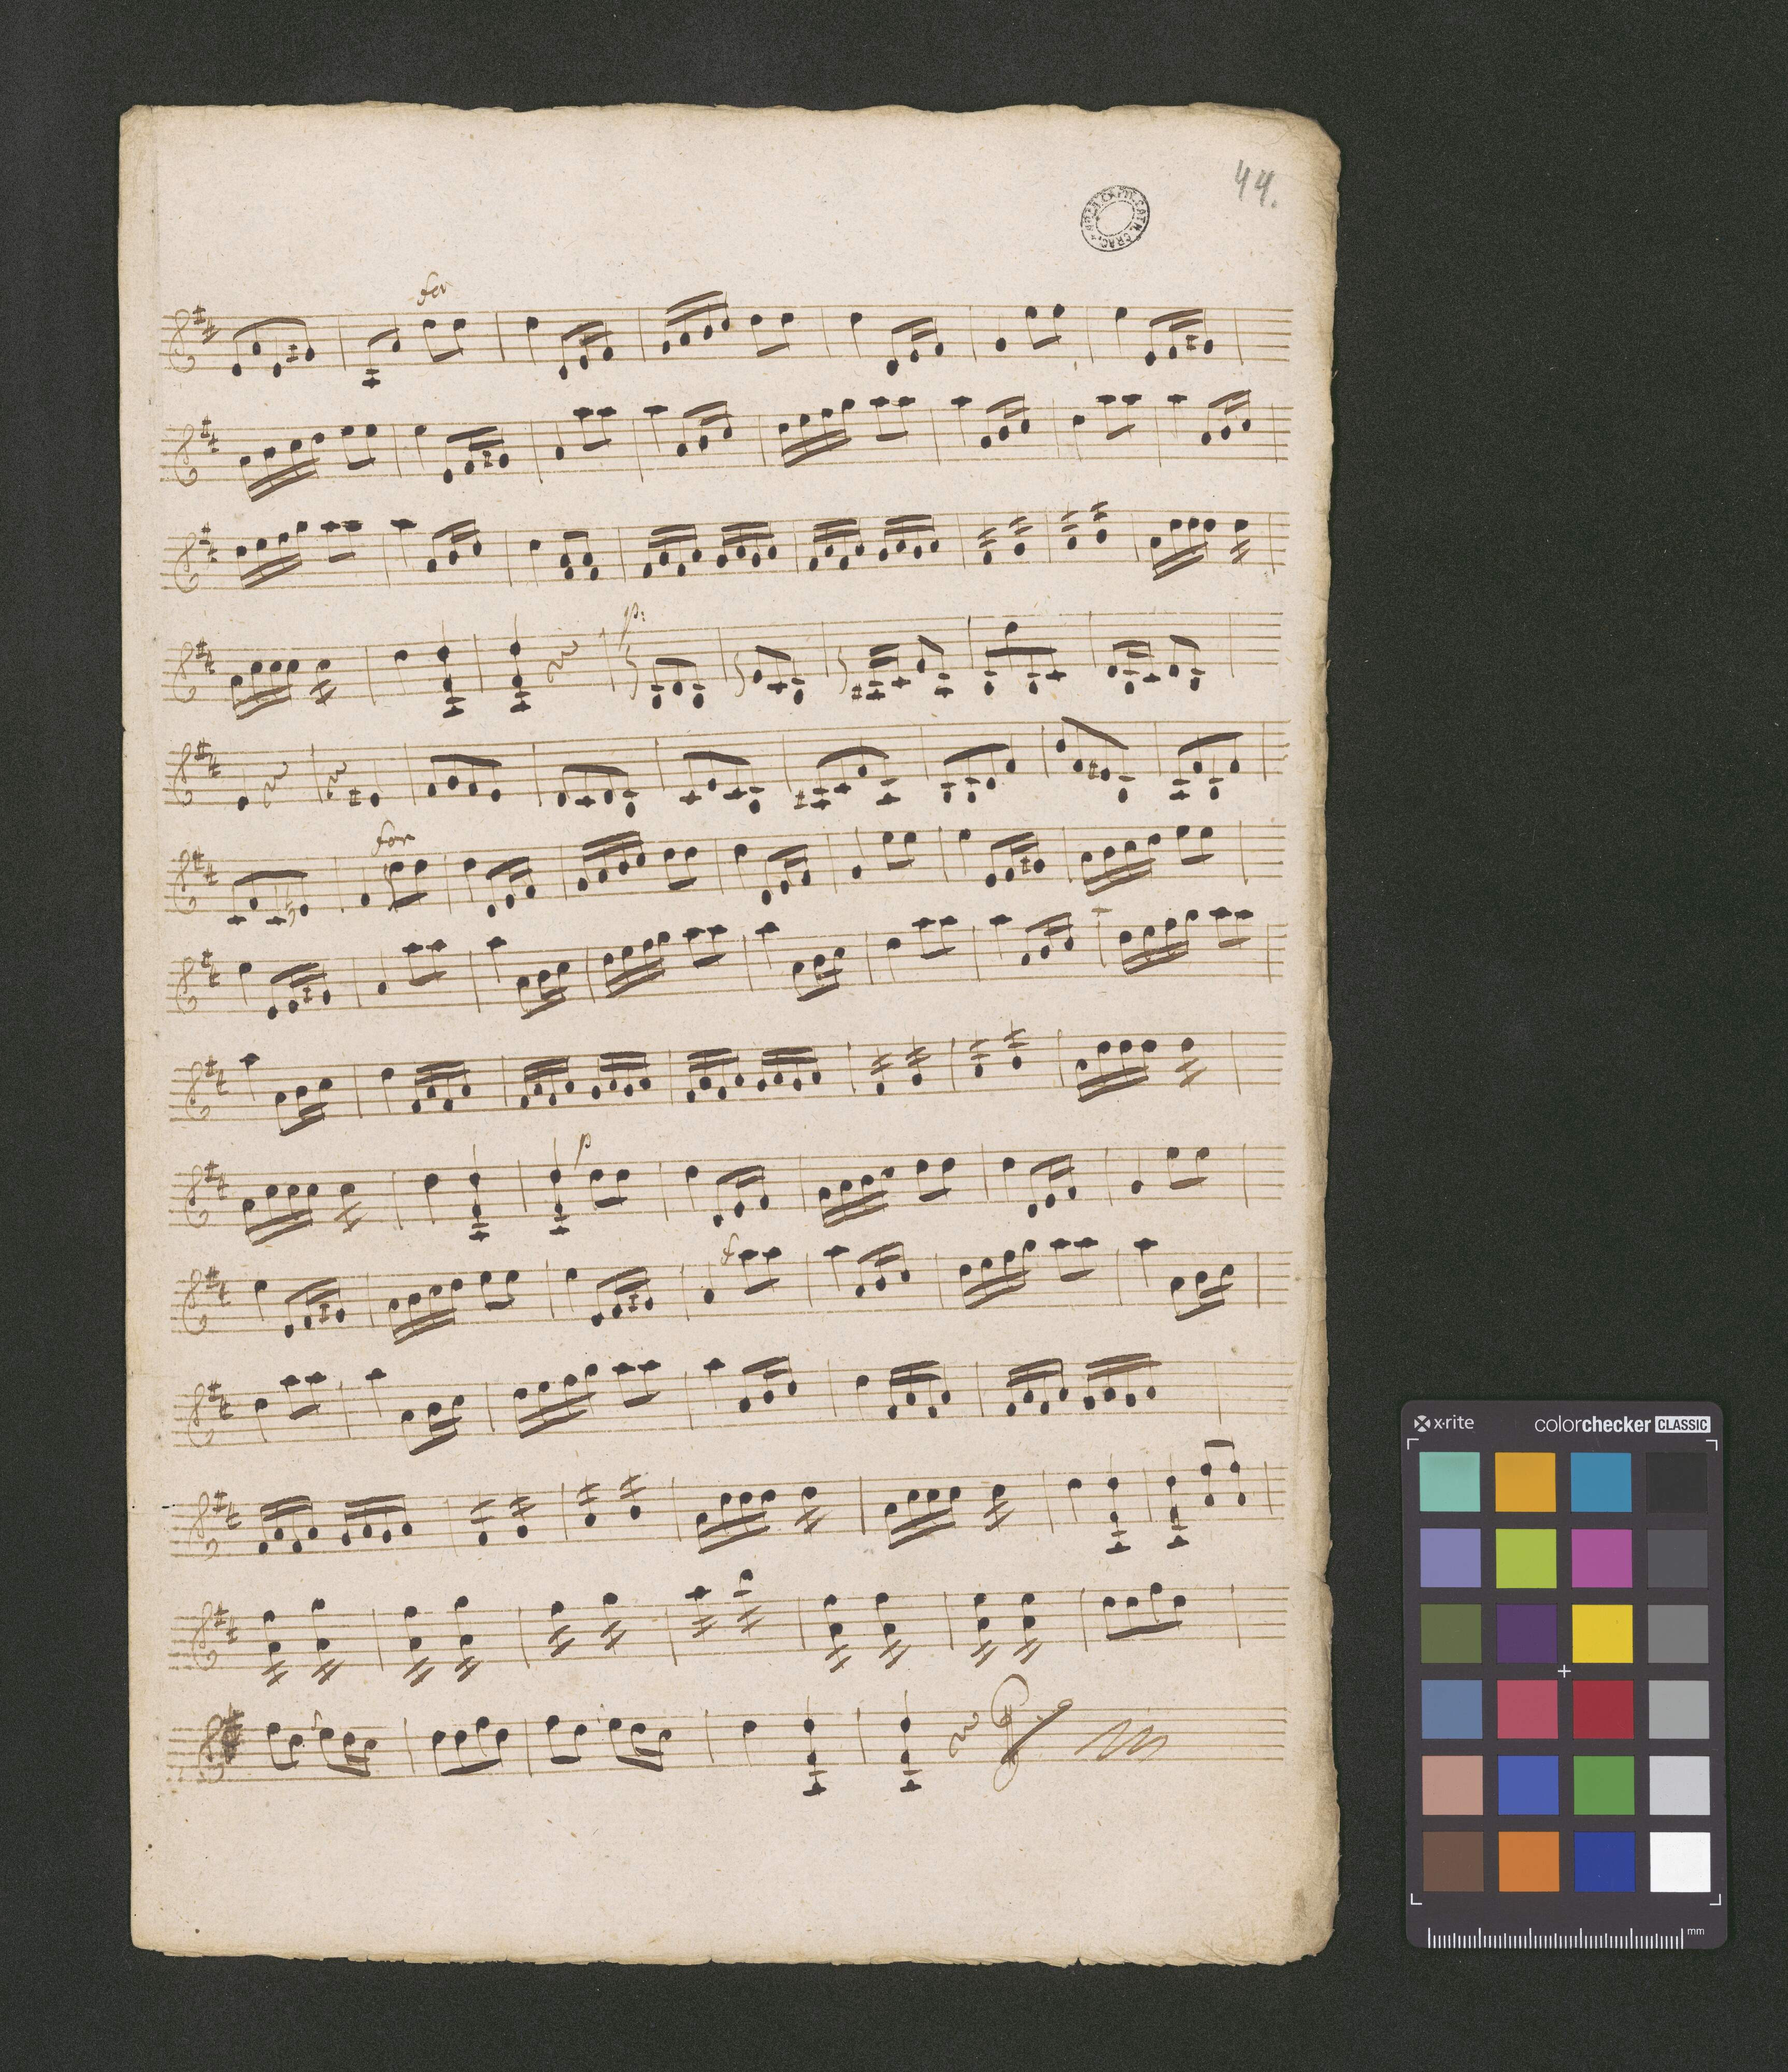 44.
for
p:
for
p
f
x-rite colorchecker CLASSIC
mm